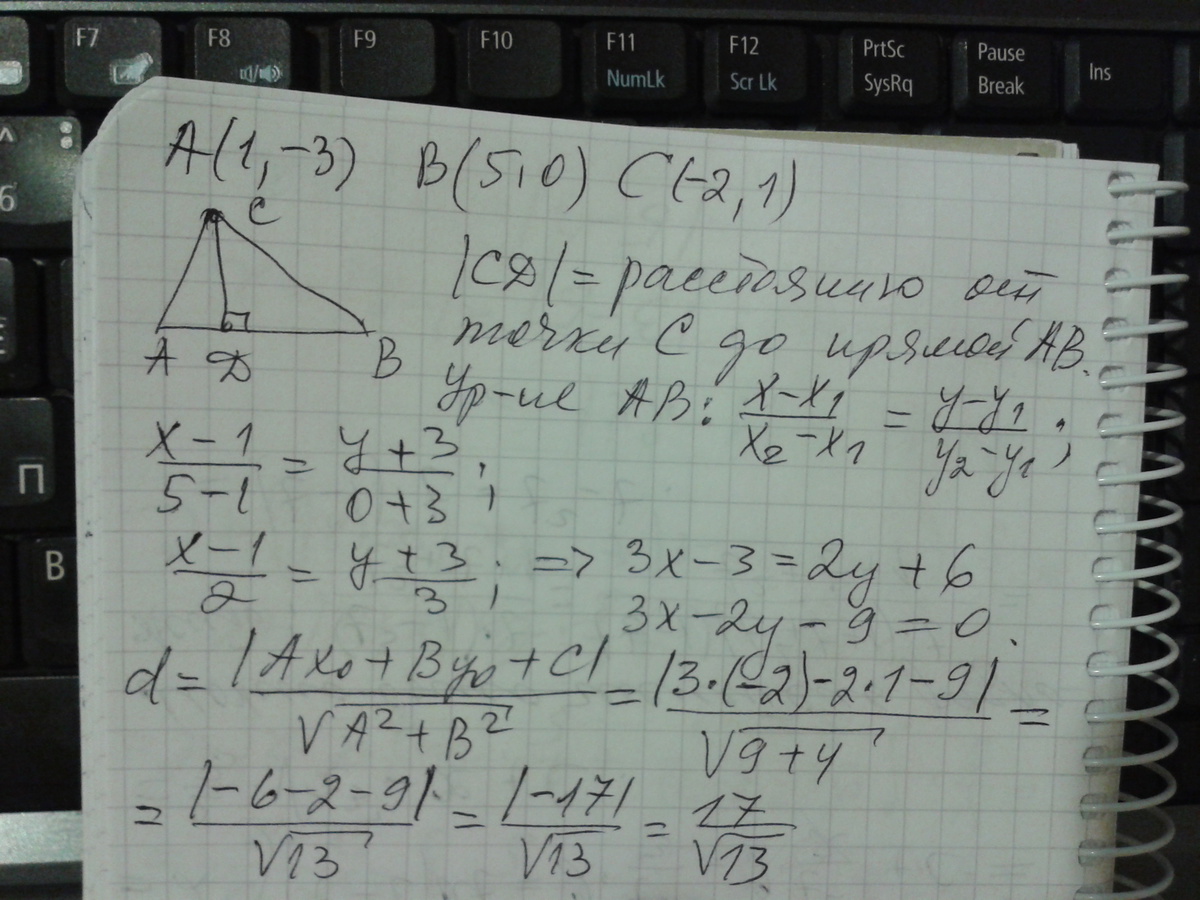 F7 F8 F9 F10 F11 F12 PrtSc Pause Ins
NumLk Scr Lk SysRq Break
6
П
В
A(1,-3) B(5,0) C(-2,1)
C
A D B
|CD| = расстоянию от
точки C до прямой AB.
Ур-ие AB: (x-x₁)/(x₂-x₁) = (y-y₁)/(y₂-y₁);
(x-1)/(5-1) = (y+3)/(0+3);
(x-1)/2 = (y+3)/3; => 3x-3=2y+6
3x-2y-9=0.
d = |Ax₀+By₀+C|/√(A²+B²) = |3·(-2)-2·1-9|/√(9+4) =
= |-6-2-9|/√13 = |-17|/√13 = 17/√13